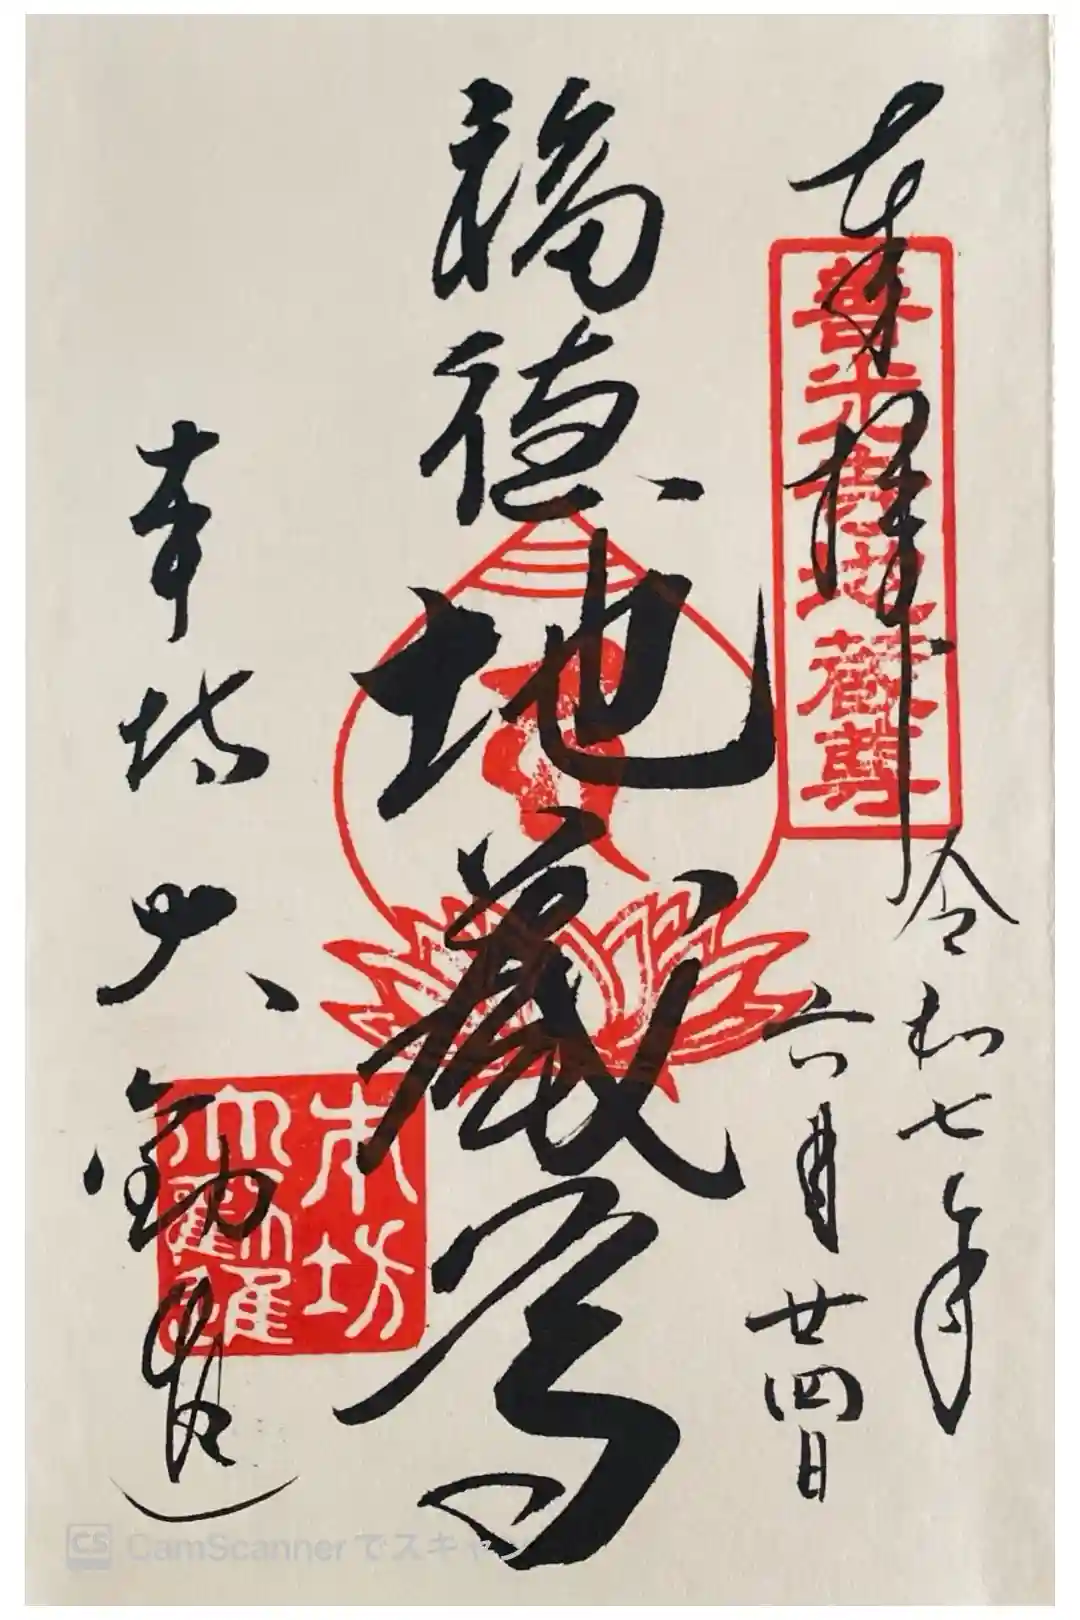 奉拝
善光寺地蔵尊
令和七年
六月廿四日
福徳地蔵尊
本坊大勧進
本坊
大勸進
CS CamScannerでスキャン